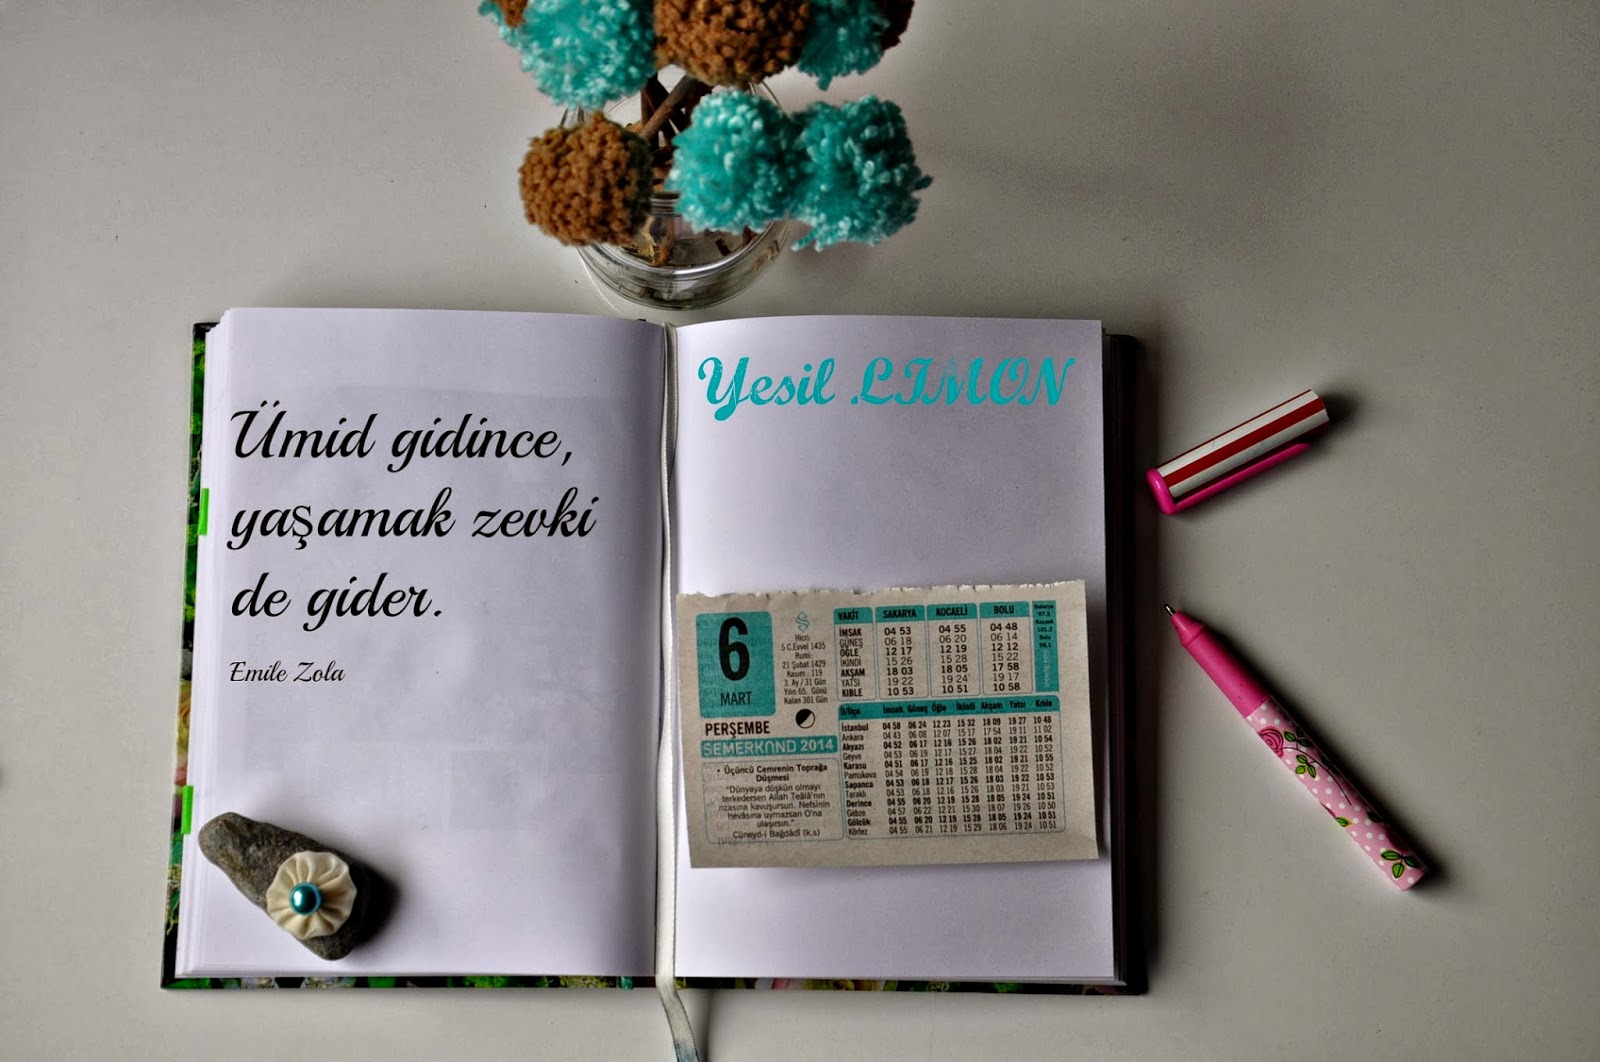 Ümid gidince,
yaşamak zevki
de gider.
Emile Zola
Yesil LIMON
6
MART
PERŞEMBE
SEMERKAND 2014
Hicri:
5 C.Evvel 1435
Rumi:
21 Şubat 1429
Kasım : 119
3. Ay / 31 Gün
Yılın 65. Günü
Kalan 301 Gün
• Üçüncü Cemrenin Toprağa
Düşmesi
"Dünyaya düşkün olmayı
terkedersen Allah Teâlâ'nın
rızasına kavuşursun. Nefsinin
hevâsına uymazsan O'na
ulaşırsın."
Cüneyd-i Bağdâdî (k.s)
VAKİT SAKARYA KOCAELİ BOLU
İMSAK 04 53 04 55 04 48
GÜNEŞ 06 18 06 20 06 14
ÖĞLE 12 17 12 19 12 12
İKİNDİ 15 26 15 28 15 22
AKŞAM 18 03 18 05 17 58
YATSI 19 22 19 24 19 17
KIBLE 10 53 10 51 10 58
Sakarya
97.5
Kocaeli
101.2
Bolu
İl/İlçe İmsak Güneş Öğle İkindi Akşam Yatsı Kıble
İstanbul 04 58 06 24 12 23 15 32 18 09 19 27 10 48
Ankara 04 43 06 08 12 07 15 17 17 54 19 11 11 02
Akyazı 04 52 06 17 12 16 15 26 18 02 19 21 10 54
Geyve 04 53 06 19 12 17
Karasu 04 51 06 17 12 16 15 25 18 02 19 21 10 55
Pamukova 04 54 06 19 12 18 15 28 18 04 19 22 10 52
Sapanca 04 53 06 18 12 17 15 26 18 03 19 22 10 53
Taraklı 04 53 06 18 12 16 15 26 18 03 19 21 10 53
Derince 04 55 06 20 12 19 15 28 18 05 19 24 10 51
Gebze 04 57 06 22 12 21 15 30 18 07 19 26 10 50
Gölcük 04 55 06 20 12 19 15 28 18 05 19 24 10 51
Körfez 04 55 06 21 12 19 15 29 18 06 19 24 10 51